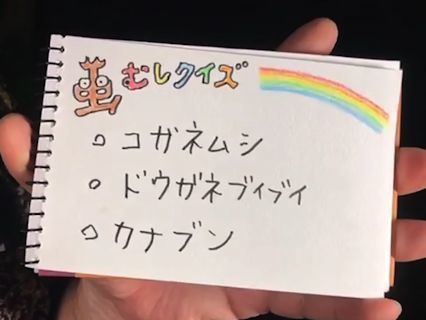 虫むしクイズ
○ コガネムシ
○ ドウガネブイブイ
○ カナブン